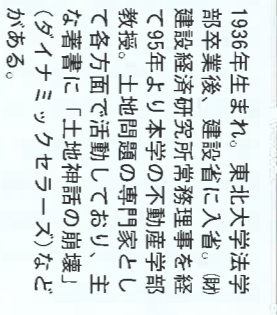 1936年生まれ。東北大学法学
部卒業後、建設省に入省。㈶
建設経済研究所常務理事を経
て95年より本学の不動産学部
教授。土地問題の専門家とし
て各方面で活動しており、主
な著書に「土地神話の崩壊」
（ダイナミックセラーズ）など
がある。